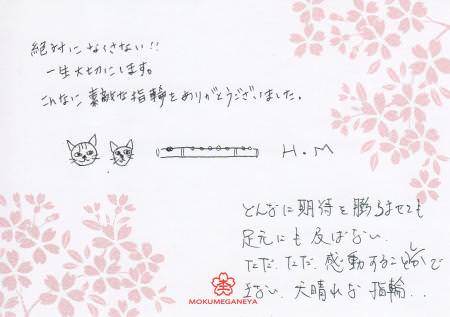 絶対になくさない!!
一生大切にします。
こんなに素敵な指輪をありがとうございました。
H.M
どんなに期待を膨らませても
足元にも及ばない
ただ、ただ、感動する
ない、天晴れな指輪..
MOKUMEGANEYA